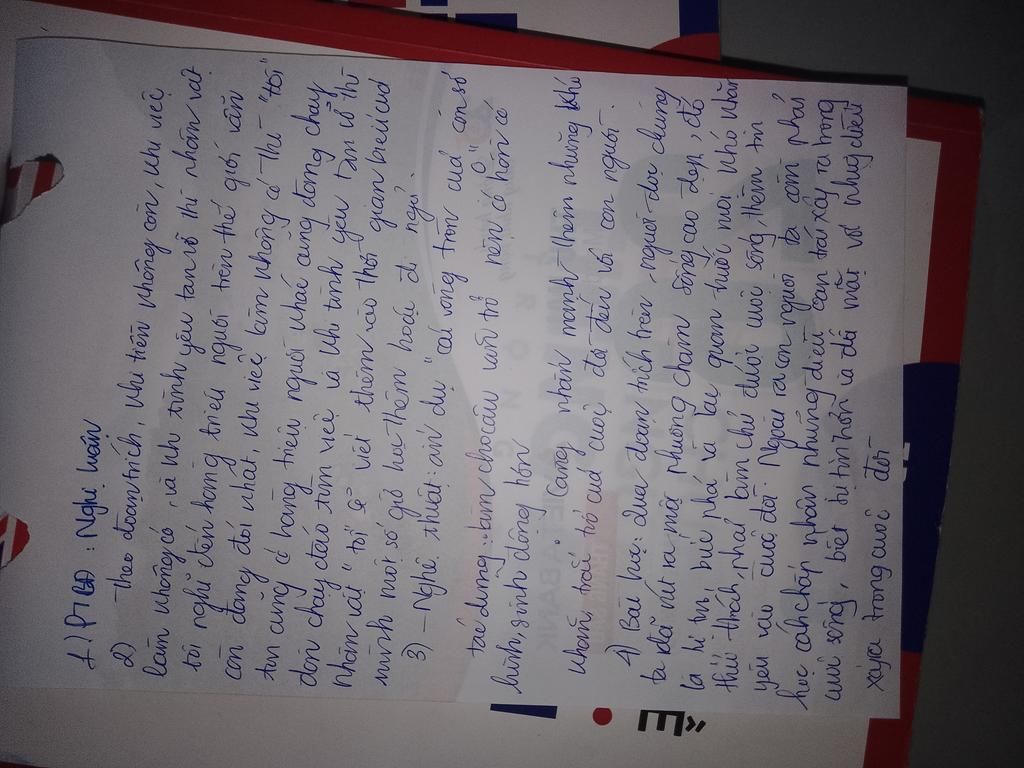 1) PTBĐ : Nghị luận
2) theo đoạn trích, khi tiền không còn, khi việc
làm không có, và khi tình yêu tan vỡ thì nhân vật
tôi nghĩ đến hàng triệu người trên thế giới vẫn
còn đang đói khát, khi việc làm không có thì "tôi"
tin cũng có hàng triệu người khác cũng đang chạy
đôn chạy đáo tìm việc và khi tình yêu tan vỡ thì
nhân vật "tôi" sẽ viết thêm vào thời gian biểu của
mình một số giờ học thêm hoặc đi ngủ.
3) - Nghệ thuật: ẩn dụ "cái vòng tròn của con số 0"
tác dụng: làm cho câu văn trở nên có hồn có
hình, sinh động hơn
Càng nhấn mạnh thêm những khó
khăn, trắc trở của cuộc đời đến với con người.
4) Bài học: qua đoạn trích trên, người đọc chúng
ta rút ra một phương châm sống cao đẹp, đó
là hi vọng bức phá và lạc quan trước mọi khó khăn
thử thách, phải làm chủ được cuộc sống, thêm tin
yêu vào cuộc đời. Ngoài ra con người ta còn phải
học cách chấp nhận những điều càn trái xảy ra trong
cuộc sống, biết tự tin hơn và đối mặt với những điều
xảy ra trong cuộc đời
BANK
Ề